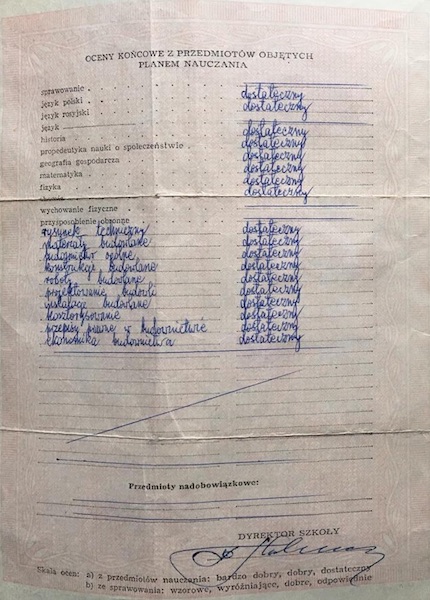 OCENY KOŃCOWE Z PRZEDMIOTÓW OBJĘTYCH
PLANEM NAUCZANIA
sprawowanie dostateczny
język polski dostateczny
język rosyjski
język
historia dostateczny
propedeutyka nauki o społeczeństwie dostateczny
geografia gospodarcza dostateczny
matematyka dostateczny
fizyka dostateczny
dostateczny
wychowanie fizyczne
przysposobienie obronne dostateczny
rysunek techniczny dostateczny
materiały budowlane dostateczny
budownictwo ogólne dostateczny
konstrukcje budowlane dostateczny
roboty budowlane dostateczny
projektowanie budowli dostateczny
instalacje budowlane dostateczny
kosztorysowanie dostateczny
przepisy prawne w budownictwie dostateczny
ekonomika budownictwa dostateczny
Przedmioty nadobowiązkowe:
DYREKTOR SZKOŁY
Skala ocen: a) z przedmiotów nauczania: bardzo dobry, dobry, dostateczny
b) ze sprawowania: wzorowe, wyróżniające, dobre, odpowiednie